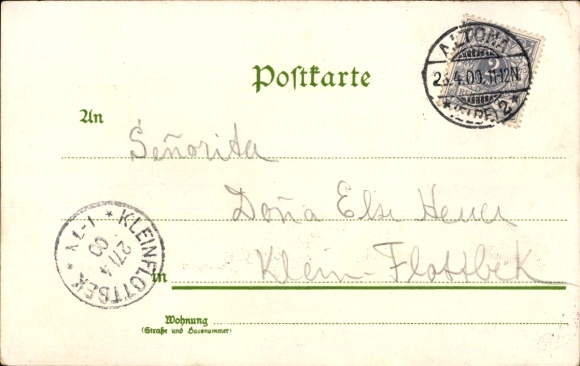 Postkarte
ALTONA
2
* (ELBE) 2 *
An
Señorita
Doña Else Heuer
Klein-Flottbek
in
* KLEINFLOTTBEK *
27/4
00
Wohnung
(Straße und Hausnummer)